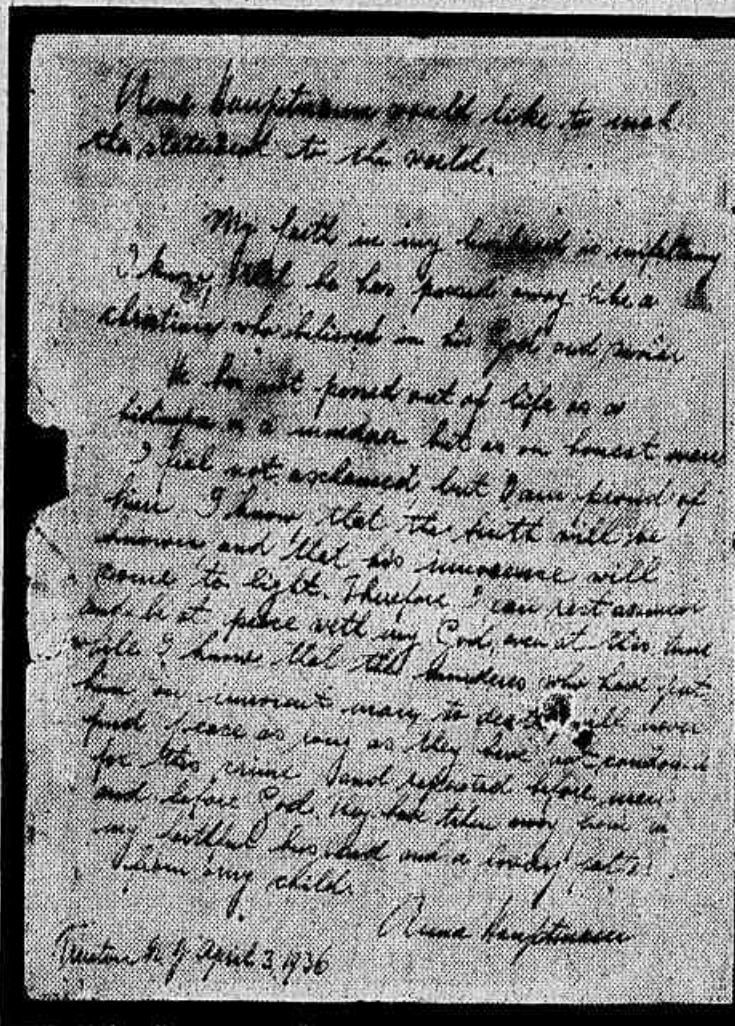 Anna Hauptmann would like to mak
the statement to the world.
My faith in my husband is unfaltering
I know that he has passed away like a
christian who believed in his God and
He has not passed out of life as a
kidnaper or a murderer but as an honest man
I feel not aschamed, but I am proud of
him I know that the truth will be
known and that his innocence will
come to light. Therefore I can rest assured
and be at peace with my God, even at this time
while I know that the murderers who have put
him an innocent man to death will never
find peace as long as they have not
for this crime and repented before men
and before God. They have taken away
my faithful husband and a loving
from my child.
Anna Hauptmann
Trenton N J April 3, 1936